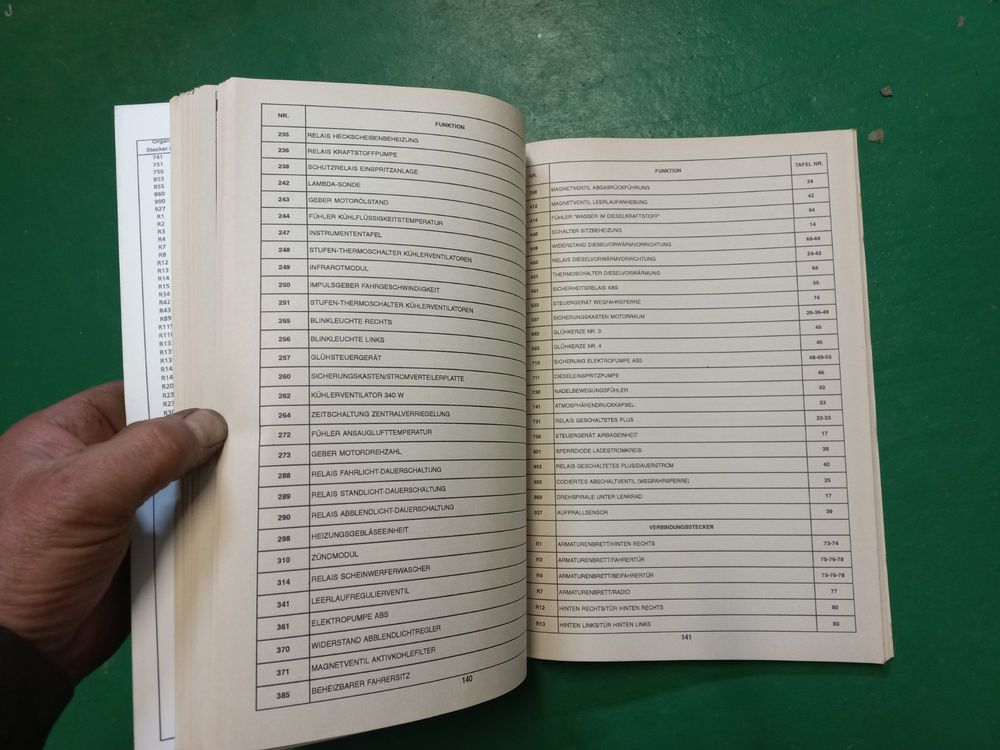 Stecker
741
751
756
853
855
860
900
927
R1
R2
R3
R4
R7
R8
R12
R13
NR. FUNKTION
235 RELAIS HECKSCHEIBENBEHEIZUNG
236 RELAIS KRAFTSTOFFPUMPE
238 SCHUTZRELAIS EINSPRITZANLAGE
242 LAMBDA-SONDE
243 GEBER MOTORÖLSTAND
244 FÜHLER KÜHLFLÜSSIGKEITSTEMPERATUR
247 INSTRUMENTENTAFEL
248 STUFEN-THERMOSCHALTER KÜHLERVENTILATOREN
249 INFRAROTMODUL
250 IMPULSGEBER FAHRGESCHWINDIGKEIT
251 STUFEN-THERMOSCHALTER KÜHLERVENTILATOREN
255 BLINKLEUCHTE RECHTS
256 BLINKLEUCHTE LINKS
257 GLÜHSTEUERGERÄT
260 SICHERUNGSKASTEN/STROMVERTEILERPLATTE
262 KÜHLERVENTILATOR 340 W
264 ZEITSCHALTUNG ZENTRALVERRIEGELUNG
272 FÜHLER ANSAUGLUFTTEMPERATUR
273 GEBER MOTORDREHZAHL
288 RELAIS FAHRLICHT-DAUERSCHALTUNG
289 RELAIS STANDLICHT-DAUERSCHALTUNG
290 RELAIS ABBLENDLICHT-DAUERSCHALTUNG
298 HEIZUNGSGEBLÄSEEINHEIT
310 ZÜNDMODUL
314 RELAIS SCHEINWERFERWASCHER
341 LEERLAUFREGULIERVENTIL
361 ELEKTROPUMPE ABS
370 WIDERSTAND ABBLENDLICHTREGLER
371 MAGNETVENTIL AKTIVKOHLEFILTER
385 BEHEIZBARER FAHRERSITZ
140
NR. FUNKTION TAFEL NR.
MAGNETVENTIL ABGASRÜCKFÜHRUNG 24
MAGNETVENTIL LEERLAUFANHEBUNG 42
FÜHLER "WASSER IM DIESELKRAFTSTOFF" 64
SCHALTER SITZBEHEIZUNG 14
WIDERSTAND DIESELVORWÄRMVORRICHTUNG 68-69
RELAIS DIESELVORWÄRMVORRICHTUNG 24-43
THERMOSCHALTER DIESELVORWÄRMUNG 68
SICHERHEITSRELAIS ABS 55
STEUERGERÄT WEGFAHRSPERRE 16
597 SICHERUNGSKASTEN MOTORRAUM 26-36-49
682 GLÜHKERZE NR. 3 45
683 GLÜHKERZE NR. 4 45
710 SICHERUNG ELEKTROPUMPE ABS 48-49-55
711 DIESELEINSPRITZPUMPE 46
NADELBEWEGUNGSFÜHLER 62
741 ATMOSPHÄRENDRUCKKAPSEL 23
751 RELAIS GESCHALTETES PLUS 22-33
756 STEUERGERÄT AIRBAGEINHEIT 17
801 SPERRDIODE LADESTROMKREIS 38
853 RELAIS GESCHALTETES PLUS/DAUERSTROM 40
855 CODIERTES ABSCHALTVENTIL (WEGFAHRSPERRE) 25
860 DREHSPIRALE UNTER LENKRAD 17
927 AUFPRALLSENSOR 39
VERBINDUNGSSTECKER
R1 ARMATURENBRETT/HINTEN RECHTS 73-74
R3 ARMATURENBRETT/FAHRERTÜR 75-76-78
R4 ARMATURENBRETT/BEIFAHRERTÜR 75-76-78
R7 ARMATURENBRETT/RADIO 77
R12 HINTEN RECHTS/TÜR HINTEN RECHTS 80
R13 HINTEN LINKS/TÜR HINTEN LINKS 80
141